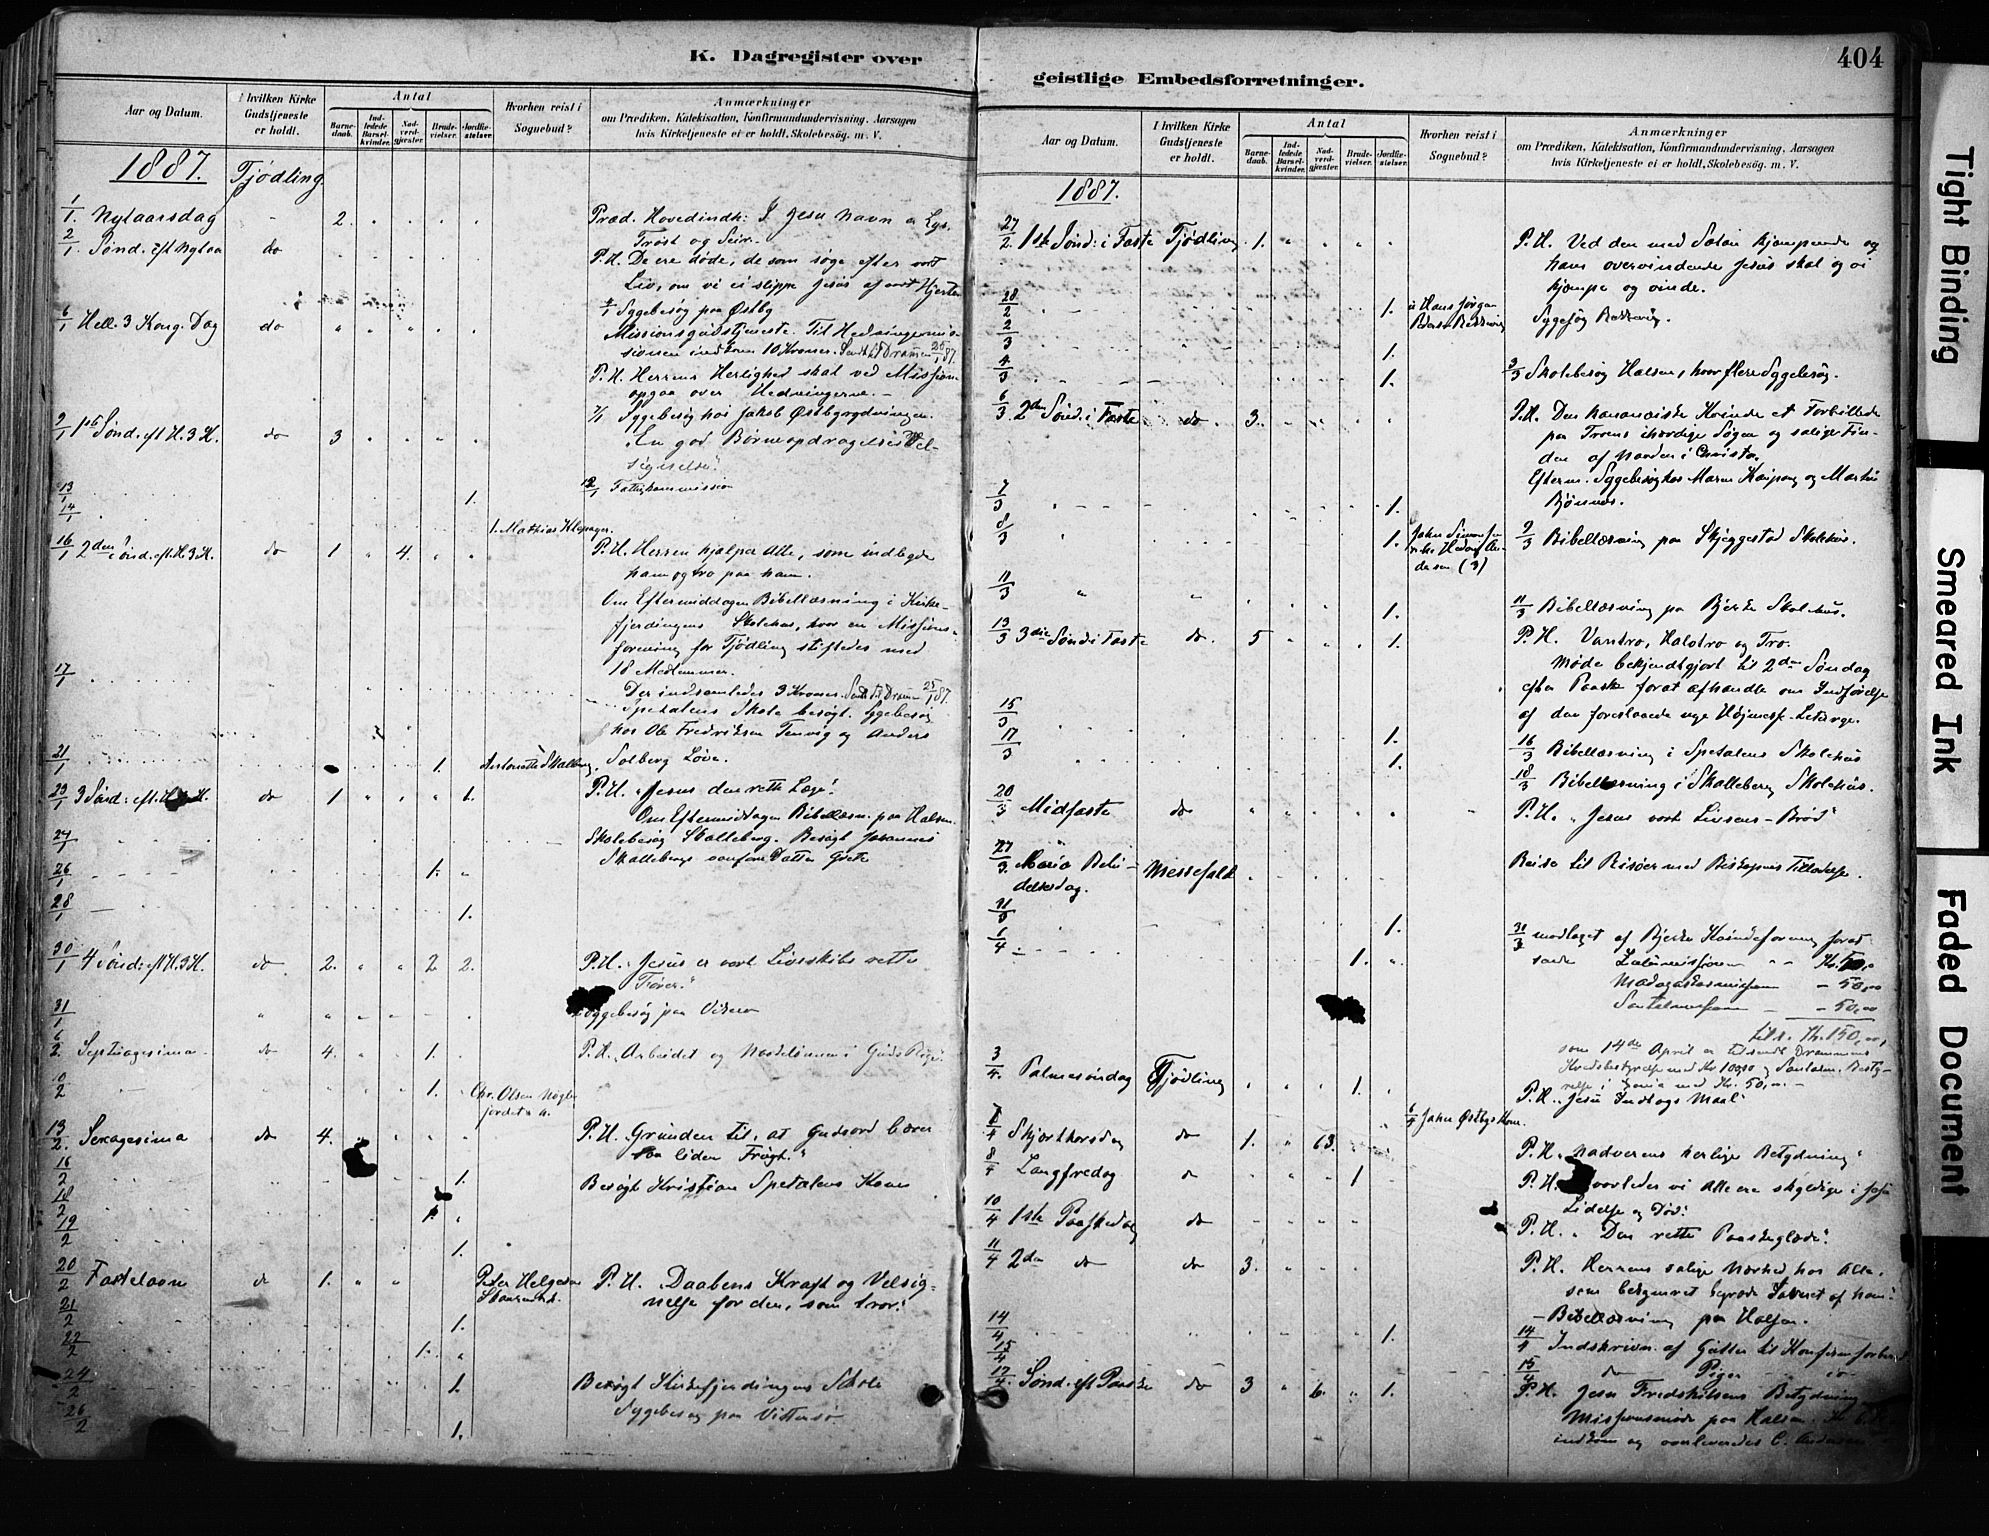 K. Dagregister over
Aar og Datum.
I hvilken Kirke Gudstjeneste er holdt.
Antal
Barnedaab.
Indledede Barselkvinder.
Nadverdgjester.
Brudevielser.
Jordfæstelser.
Hvorhen reist i Sognebud?
Anmærkninger
om Prædiken, Katekisation, Konfirmandundervisning, Aarsagen
hvis Kirketjeneste ei er holdt, Skolebesög, m. V.
1887. Tjødling.
1/1. Nytaarsdag 2. Præd. Hovedindh: I Jesu Navn er Lys,
Trøst og Seir.
2/1 Sønd. eft Nytaar do P.H. De ere døde, de som søge efter vort
Liv, om vi ei slippe Jesus af vort Hjerte
Sygebesøg paa Østby
6/1 Hell. 3 Kong. Dag do Missionsgudstjeneste. Til Hedningemis-
sionen indkom 10 Kroner. Sendt til Drammen 25/1 87.
P.H. Herrens Herlighed skal ved Mission
opgaa over Hedningerne.
7/1 Sygebesøg hos Jakob Østbyrydningen.
9/1 1ste Sønd. eft H. 3 K. do 3 En god Børneopdragelses Vel-
signelse.
13/1 1. 12/1 Fattigkommission
14/1 1. Mathias Klepager.
16/1 2den Sønd. eft. H. 3 K. do 1 4. P.H. Herren hjælper Alle, som indbyde
ham og tro paa ham.
Om Eftermiddagen Bibellæsning i Kirke-
fjerdingens Skolehus, hvor en Missions-
forening for Tjødling stiftedes med
18 Medlemmer.
17/1 Der indsamledes 3 Kroner. Sendt til Drammen 25/1 87.
Spetalens Skole besøgt. Sygebesøg
hos Ole Fredriksen Tenvig og Anders
21/1 1. Antonette Skalleberg. Solberg Løve.
23/1 3 Sønd. eft. H. 3 K. do 1 1. P.H. "Jesus den rette Læge"
Om Eftermiddagen Bibellæsn. paa Halsen.
24/1 Skolebesøg Skalleberg. Besøgt Johannes
Skallebergs Datter Grete
26/1 1.
28/1 1.
30/1 4 Sønd. eft H. 3 K. do 2. 2 2. P.H. "Jesus er vort Livsskibs rette
Fører."
31/1 Sygebesøg paa
6/2. Septuagesima do 4. 1. P.H. Arbeidet og Nadelønnen i Guds Rige
10/2 1. Chr. Olsen
13/2. Sexagesima do 4. P.H. Grunden til, at Guds ord bærer
saa liden Frugt."
16/2 1. Besøgt Kristian Spetalens Kone
18/2 1.
19/2 1.
20/2 Fastelavn do 1. Peter Helgesen P.H. Daabens Kraft og Velsig-
nelse for den, som tror.
21/2 1.
22/2 1.
24/2 1. Besøgt Kirkefjerdingens Skole
Sygebesøg paa Vittersø
26/2 1.
geistlige Embedsforretninger.
404
Aar og Datum.
I hvilken Kirke Gudstjeneste er holdt.
Antal
Barnedaab.
Indledede Barselkvinder.
Nadverdgjester.
Brudevielser.
Jordfæstelser.
Hvorhen reist i Sognebud?
Anmærkninger
om Prædiken, Katekisation, Konfirmandundervisning, Aarsagen
hvis Kirketjeneste ei er holdt, Skolebesög, m. V.
1887.
27/2. 1ste Sønd: i Faste Tjødling 1. P.H. Ved den med Satan kjæmpende og
ham overvindende Jesus skal og vi
kjæmpe og vinde.
28/2 1. Hans Jørgen Sygebesøg
2/3 1.
4/3 1. 3/3 Skolebesøg Halsen, hvor flere Sygebesøg.
6/3 2den Sønd. i Faste do. 3. P.H. Den kananæiske Kvinde et Forbillede
paa Troens ihærdige Søgen og salige Fin-
den af Naaden i Christo.
Efterm. Sygebesøg hos Maren Kaupang og Martin
Bjønnes.
7/3 1.
8/3 1. (3) 9/3 Bibellæsning paa Skjeggestad Skolehus.
11/3 1. 11/3 Bibellæsning paa Bjerke Skolehus.
13/3 3die Sønd i Faste do. 5 1. P.H. Vantro, Halvtro og Tro.
Møde bekjendtgjort til 2den Søndag
efter Paaske forat afhandle om Indførelse
af den foreslaaede nye Høimesse-Liturgi.
15/3 1. 16/3 Bibellæsning i Spetalens Skolehus
17/3 1. 18/3 Bibellæsning i Skalleberg Skolehus.
20/3 Midfaste do P.H. "Jesus vort Livsens-Brød"
27/3. Mariæ Bebu-
delsesdag. Messefald Reise til Risøer med Biskopens Tilladelse.
31/3 1. 31/3 modtaget af Bjerke Kvindeforening forat
1/4 1. sende Lutermissionen Kr. 50,00
Madagaskarmissionen - 50,00
Santalmissionen - 50,00
tils. Kr. 150,00,
som 14de April er tilsendt Drammens
Kredsbestyrelse med Kr 100,00 og Santalm. Besty-
relse i med Kr. 50,00
3/4. Palmesøndag Tjødling 1. P.H. "Jesu Indtogs Maal"
6/4 John Østbys Kone.
7/4 Skjærthorsdag do 1. 63. P.H. "Nadverens herlige Betydning"
8/4 Langfredag do 1 P.H. Hvorledes vi Alle ere skyldige i Jesu
Lidelse og Død."
10/4 1ste Paaskedag do P.H. "Den rette Paaskeglæde".
11/4 2den do do 3. P.H. Herrens salige Nærhed hos Alle,
som bekymret begræde Savnet af ham."
- Bibellæsning paa Halsen.
14/4 1. 14/4 Indskrivn. af Gutter til Konfirm.forbered
15/4 15/4 do Piger do
17/4. Sønd. eft Paaske do 3 6. 1. P.H. Jesu Fredshilsens Betydning
Missionsmøde paa Halsen. Kr
indkom og overleveredes C. Andersen
Tight Binding
Smeared Ink
Faded Document